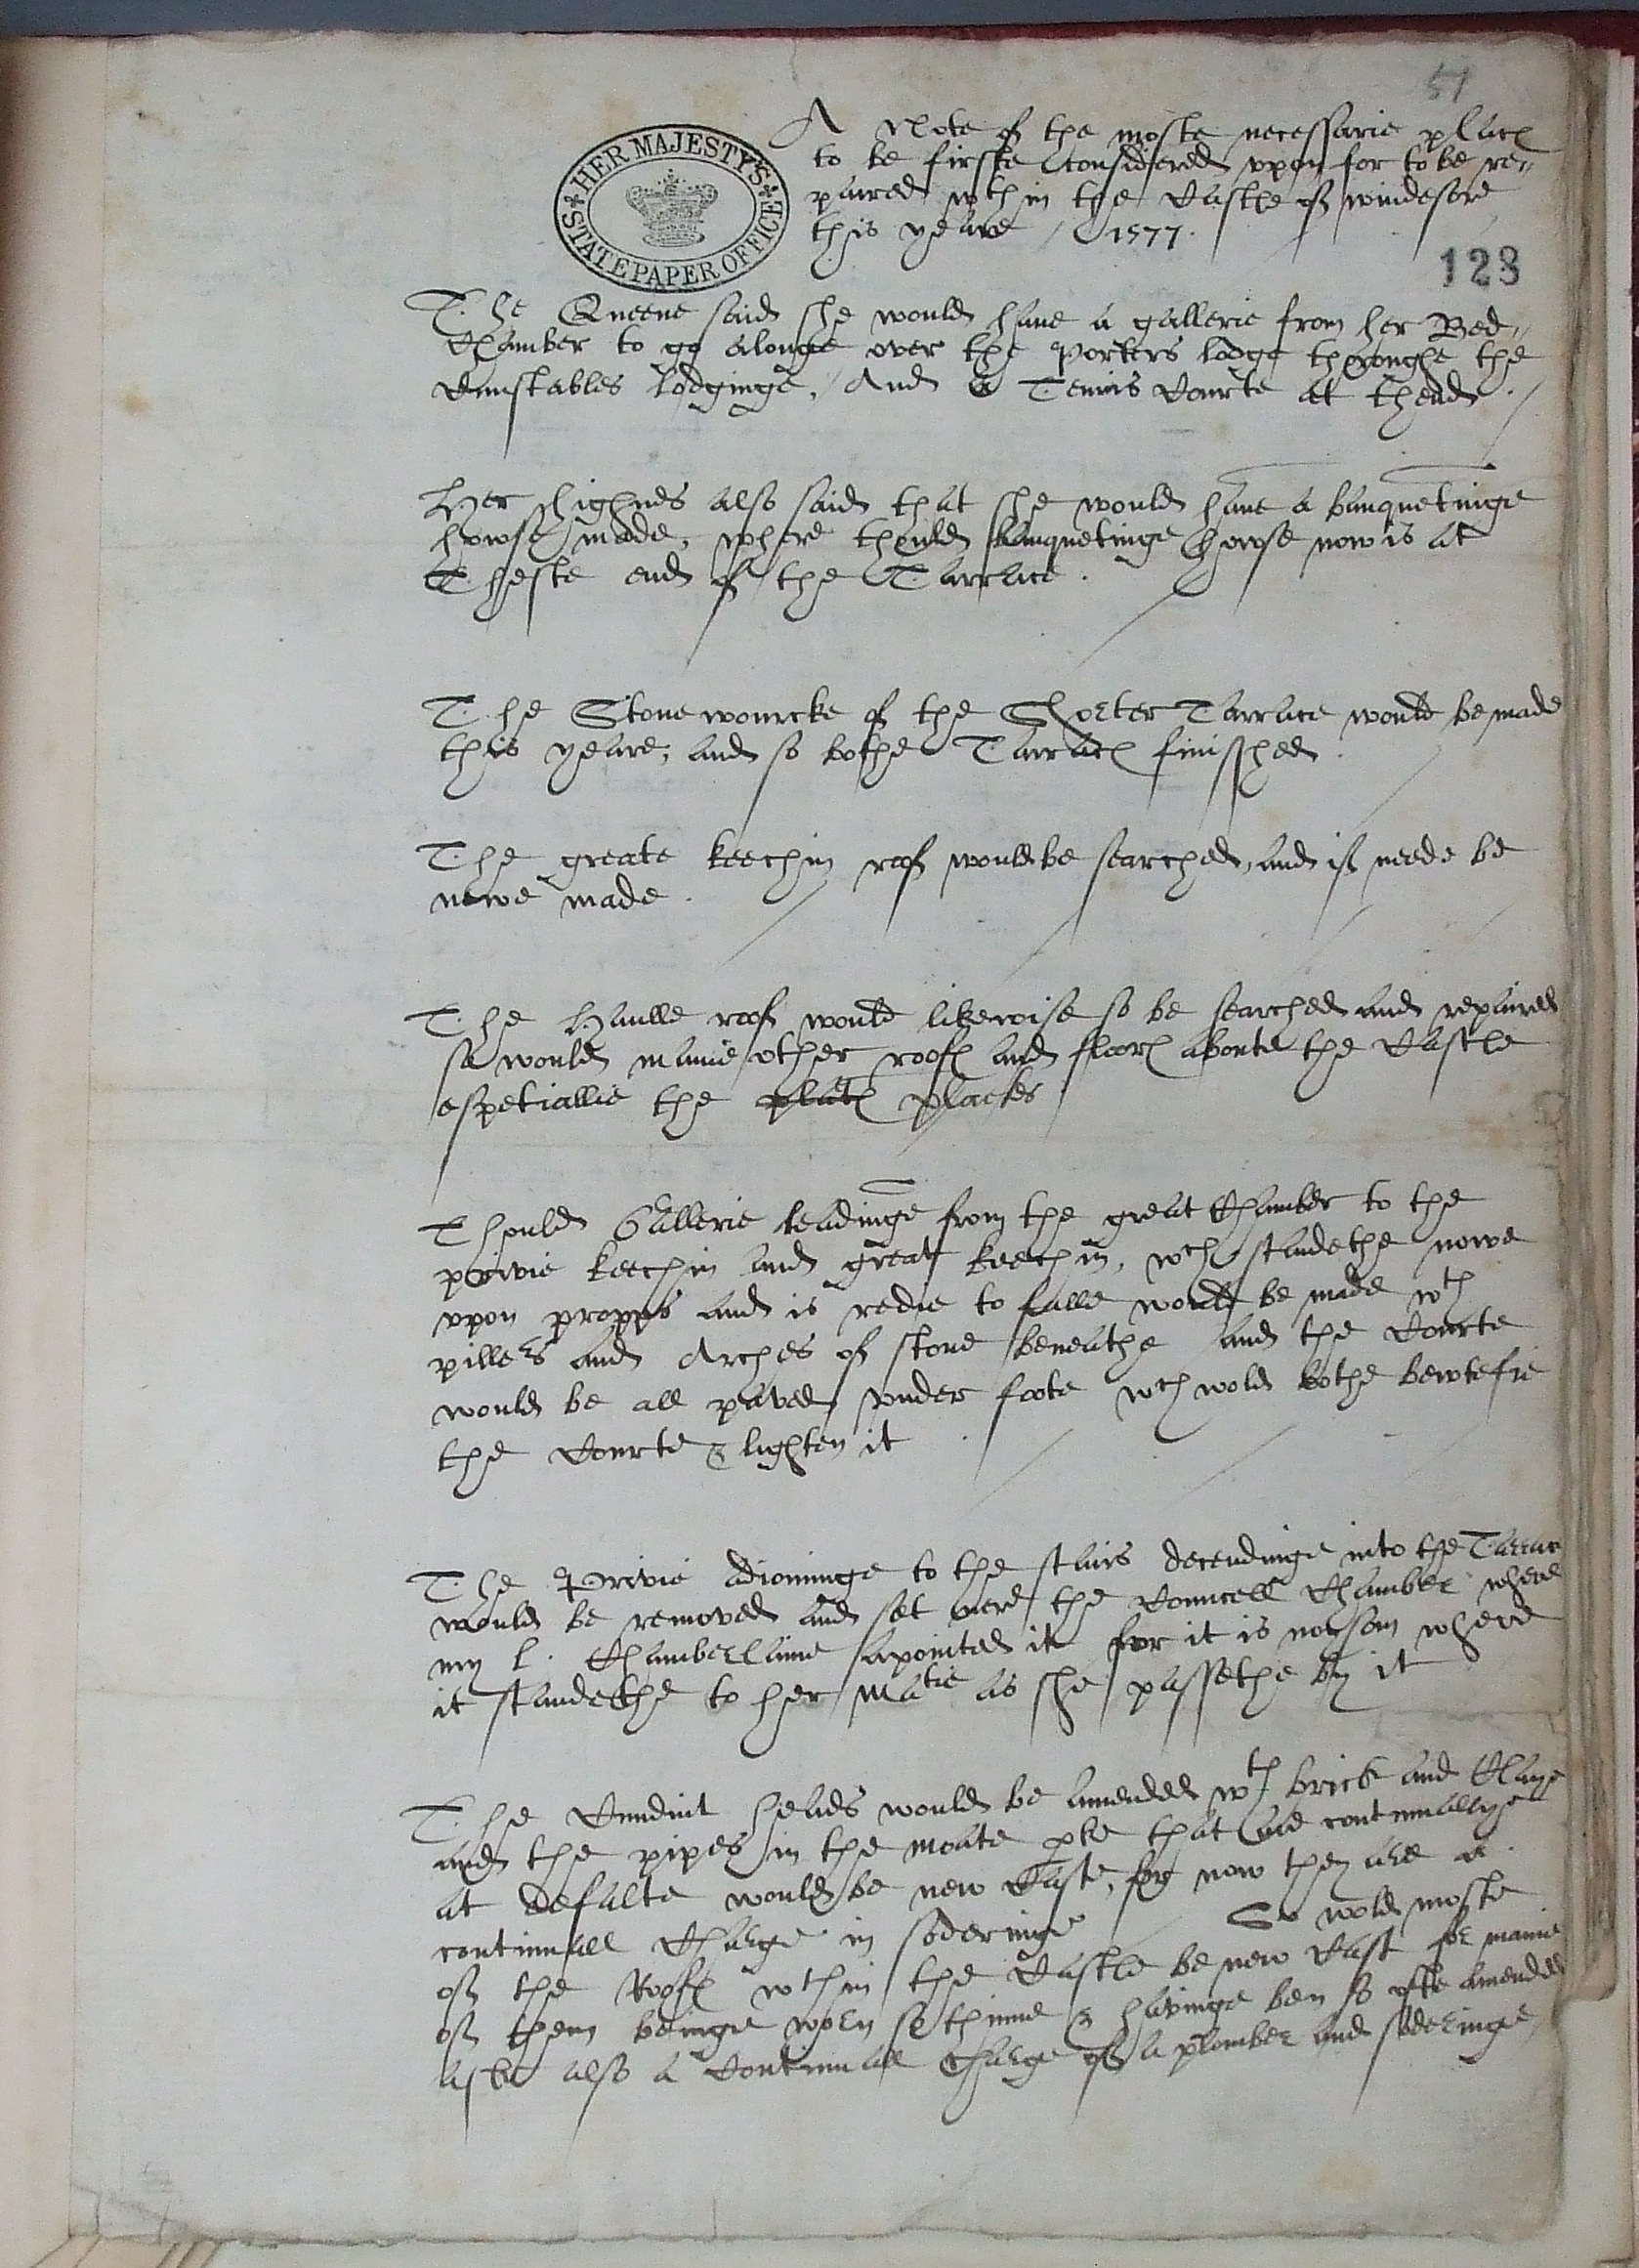 51
A Note of the moste necessarie places
to be firste Considered vpon for to be re-
paired wth in the Castle of windesore
this yeare / 1577.
HER MAJESTY'S STATE PAPER OFFICE
128
The Queene said she would haue a gallerie from her Bed-
Chamber to go alonge over the Porters lodge thronghe the
Cunstables lodginge, And a Tennis Courte at thend.
Her highnes also said that she would haue a banquetinge
howse made, where thould banquetinge howse now is at
Theste end of the Tarrace.
The Stone wourcke of the Shorter Tarrace would be made
this yeare, and so bothe Tarraces finisshed.
The greate keechin roof would be searched, and if neede be
newe made.
The Haulle roof would likewise so be searched and repaired
so would manie other roofes and floores aboute the Castle
espetiallie the places plackes
Thould Gallerie leadinge from the great Chamber to the
privie keechin and great keechin, wch standethe nowe
vpon propps and is redie to falle would be made wth
pillers and Arches of stone beneathe and the Courte
would be all paved vnder foote wch wold bothe bewtefie
the Courte & lighten it
The Privie adioininge to the stairs decendinge into the Tarrac
would be removed and set nere the Councell Chamber where
my l. Chamberlaine apointed it for it is noysom where
it standethe to her Matie as she passethe by it
The Cunduit heads would be amended wth brick and Claye
and the pipes in the moate that are continuallye
at defalte would be new Caste, for now they are a
continuall Charge in soderinge So wold moste
of the Roofes wthin the Castle be new Cast for manie
of them beinge worn so thinne & havinge ben so ofte amended
also a Continuall Charge of a plomber and soderinge